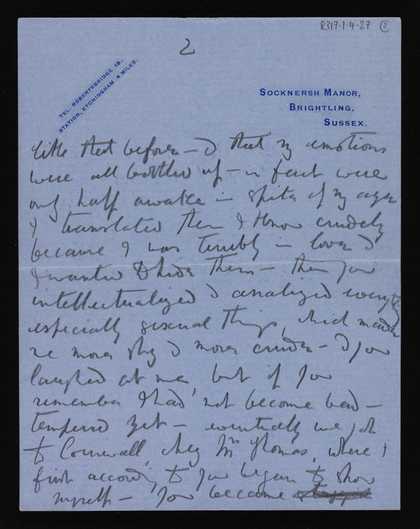 R317-1-4-27 (2)
2
TEL. ROBERTSBRIDGE 19.
STATION, ETCHINGHAM 4 MILES.
SOCKNERSH MANOR,
BRIGHTLING,
SUSSEX.
like that before – & that my emotions
were all bottled up – in fact were
only half awake in spite of my age
I translated them I know crudely
because I was terribly in love &
I wanted to hide them – then you
intellectualized & analized everything
especially sexual things, which made
me more shy & more crude – & you
laughed at me, but if you
remember I had not become bad-
tempered yet – eventually we got
to Cornwall, chez Mrs Thomas, where I
first according to you began to show
myself – you became